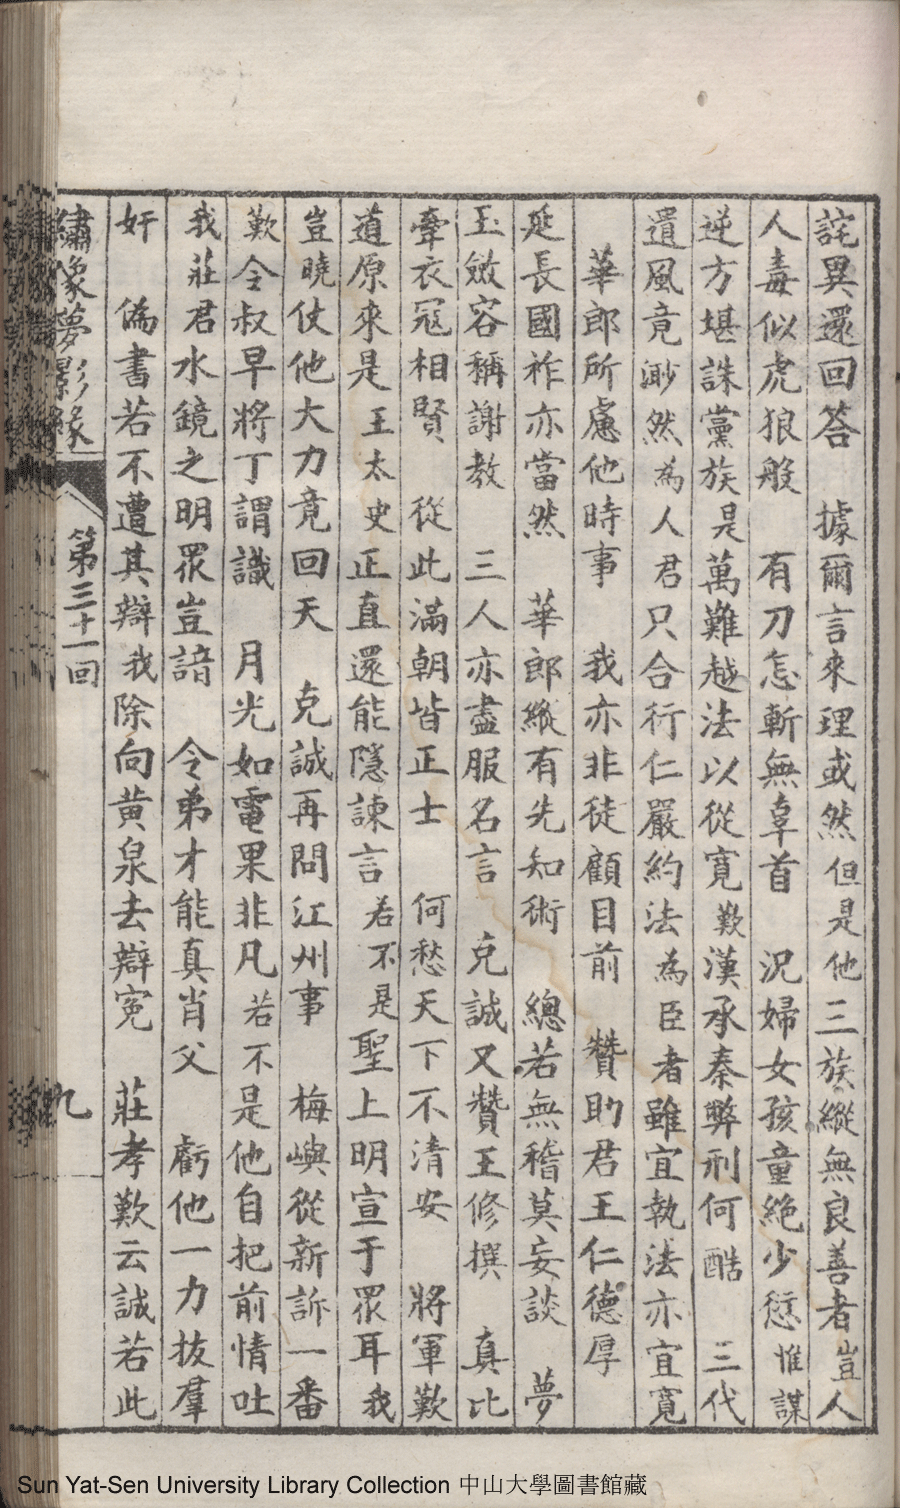 詫異還回答　據爾言來理或然但是他三族縱無良善者豈人
人毒似虎狼般　有刀怎斬無辜首　況婦女孩童絕少愆惟謀
逆方堪誅黨族是萬難越法以從寬歎漢承秦弊刑何酷　三代
遺風竟渺然為人君只合行仁嚴約法為臣者雖宜執法亦宜寬
華郎所慮他時事　我亦非徒顧目前　贊助君王仁德厚
延長國祚亦當然　華郎縱有先知術　總若無稽莫妄談　夢
玉斂容稱謝教　三人亦盡服名言　克誠又贊王修撰　真比
牽衣冦相賢　從此滿朝皆正士　何愁天下不清安　將軍歎
道原來是王太史正直還能隱諫言若不是聖上明宣于眾耳我
豈曉仗他大力竟回天　克誠再問江州事　梅嶼從新訴一番
歎令叔早將丁謂識　月光如電果非凡若不是他自把前情吐
我莊君水鏡之明眾豈諳　令弟才能真肖父　虧他一力拔羣
奸　偽書若不遭其辯我除向黃泉去辯寃　莊孝歎云誠若此
繡像夢影緣
第三十一回
九
Sun Yat-Sen University Library Collection 中山大學圖書館藏